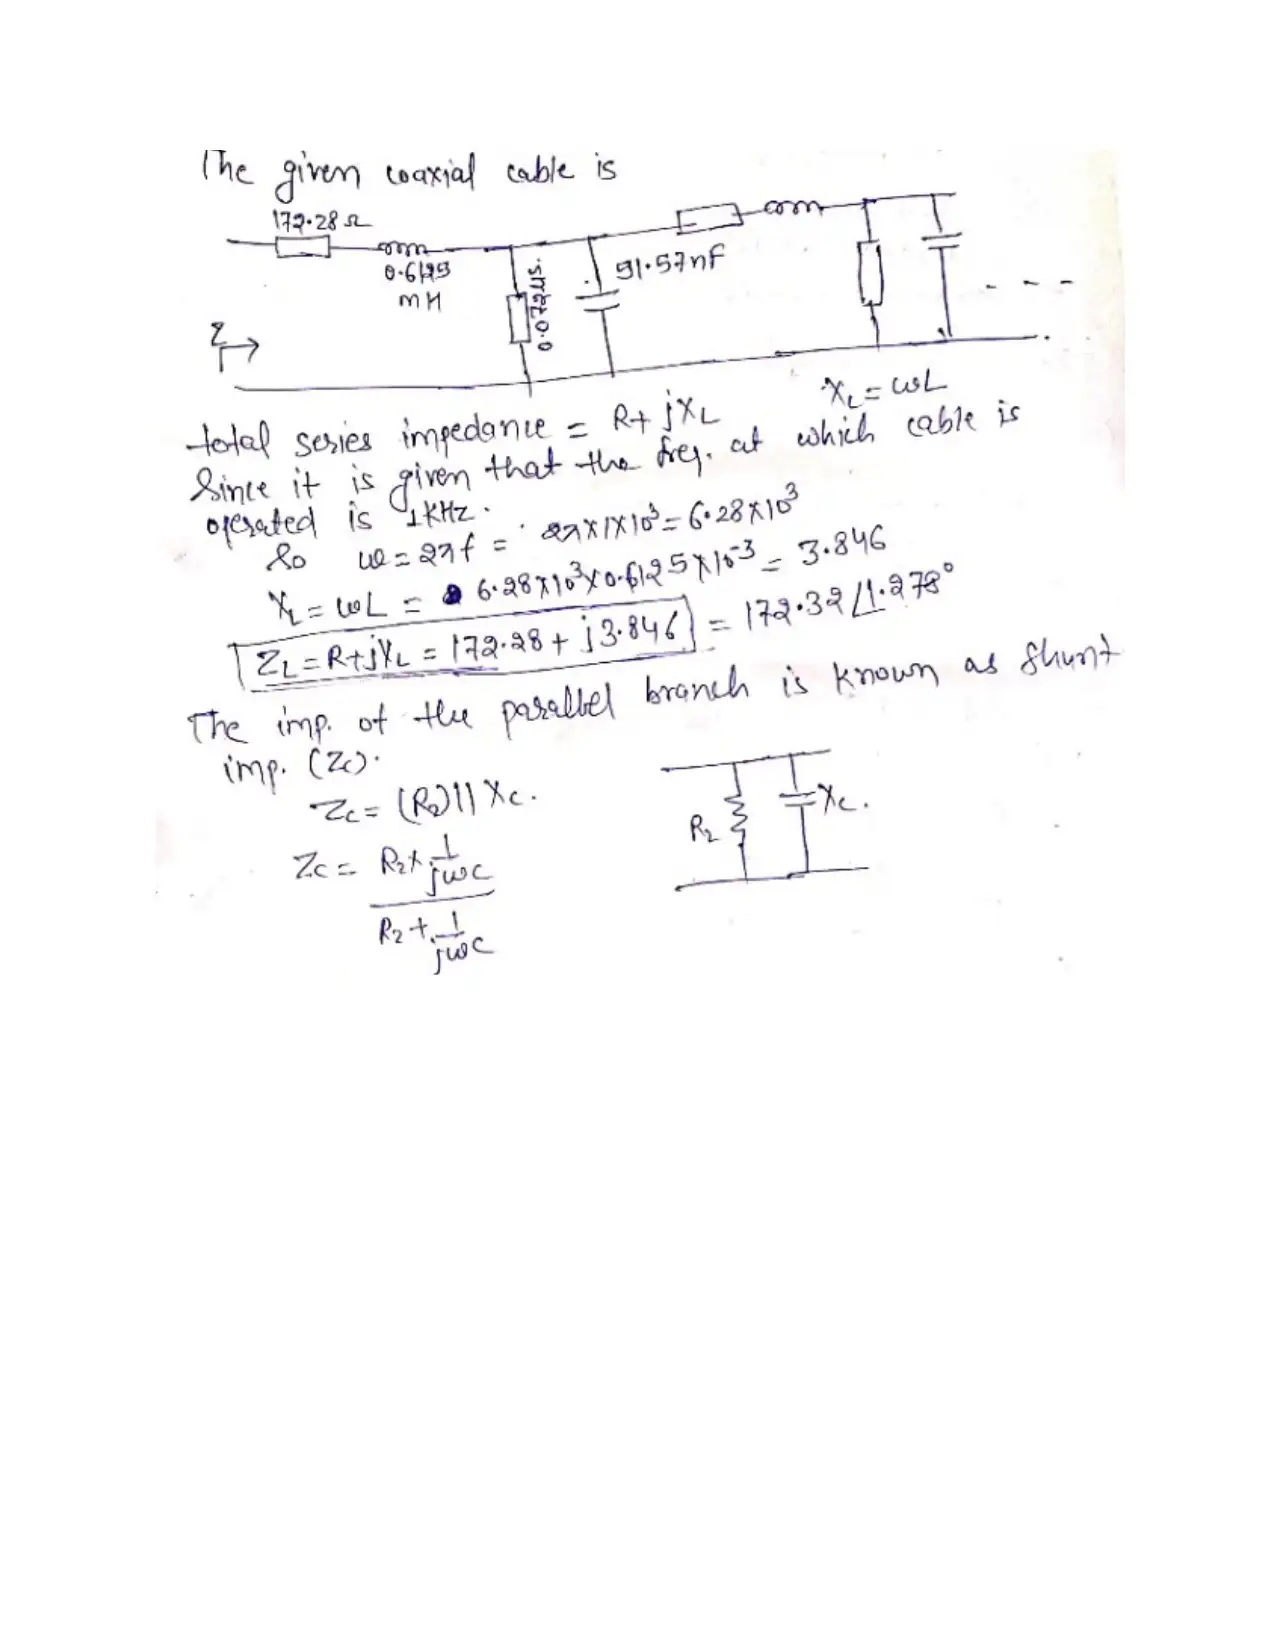 The given coaxial cable is
172.28 Ω
0.6125
mH
0.072 μs.
91.57nF
Z
total series impedance = R+ jXL
XL = ωL
Since it is given that the freq. at which cable is
operated is 1KHz.
So ω = 2πf = 2π×1×10³ = 6.28×10³
XL = ωL = 6.28×10³×0.6125×10⁻³ = 3.846
ZL = R+jXL = 172.28 + j3.846 = 172.32∠1.278°
The imp. of the parallel branch is known as shunt
imp. (Zc).
Zc = (R2)|| Xc.
R2
Xc.
Zc = R2×1/jωc
R2+1/jωc